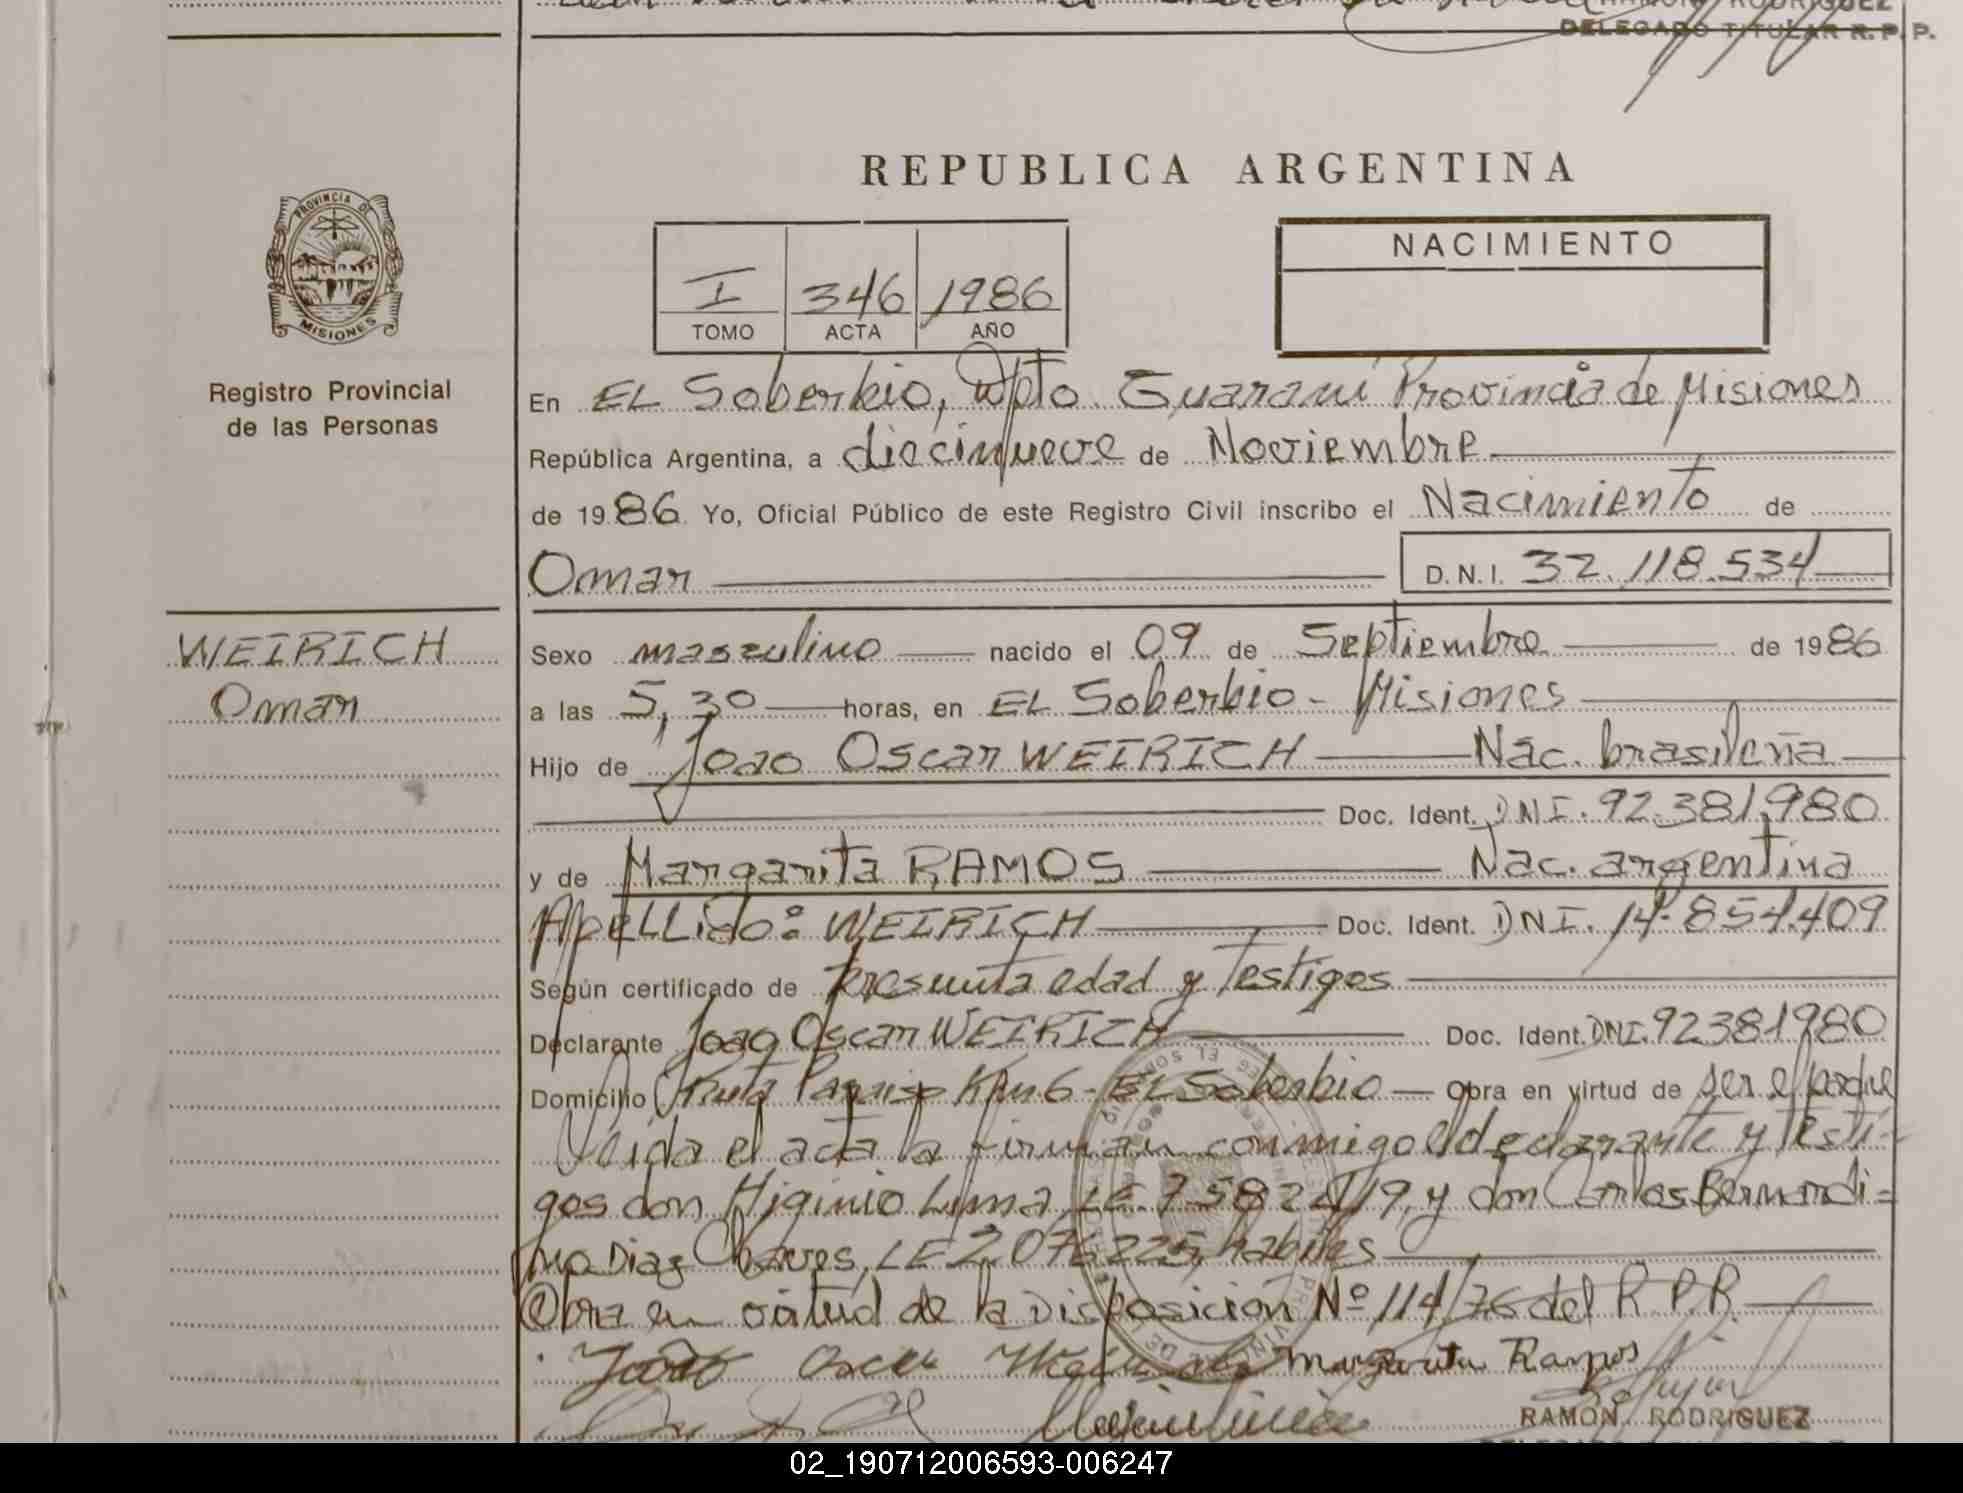 RAMON RODRIGUEZ
DELEGADO TITULAR R. P. P.
PROVINCIA DE
MISIONES
Registro Provincial
de las Personas
WEIRICH
Omar
REPUBLICA ARGENTINA
I 346 1986
TOMO ACTA AÑO
NACIMIENTO
En EL Soberbio, Dpto Guaraní Provincia de Misiones
República Argentina, a diecinueve de Noviembre
de 1986 Yo, Oficial Público de este Registro Civil inscribo el Nacimiento de
Omar D.N.I. 32.118.534
Sexo masculino nacido el 09 de Septiembre de 1986
a las 5,30 horas, en EL Soberbio - Misiones
Hijo de Joao Oscar WEIRICH Nac. brasileña
Doc. Ident. DNI. 92.381.980
y de Margarita RAMOS Nac. argentina
Apellido: WEIRICH Doc. Ident. DNI. 14.854.409
Según certificado de presunta edad y Testigos
Declarante Joao Oscar WEIRICH Doc. Ident. DNI. 92381980
Domicilio Ruta Paraiso Km 6 - EL Soberbio Obra en virtud de ser el padre
Leida el acta la firman conmigo el declarante y testi-
gos don Higinio Lima LE. 7.582 y don Carlos Bernardi=
no Diaz Chaves, LE 2.076.225, habiles
Obra en virtud de la Disposición Nº 114/76 del R.P.P.
João Oscar Margarita Ramos
RAMON RODRIGUEZ
02_190712006593-006247